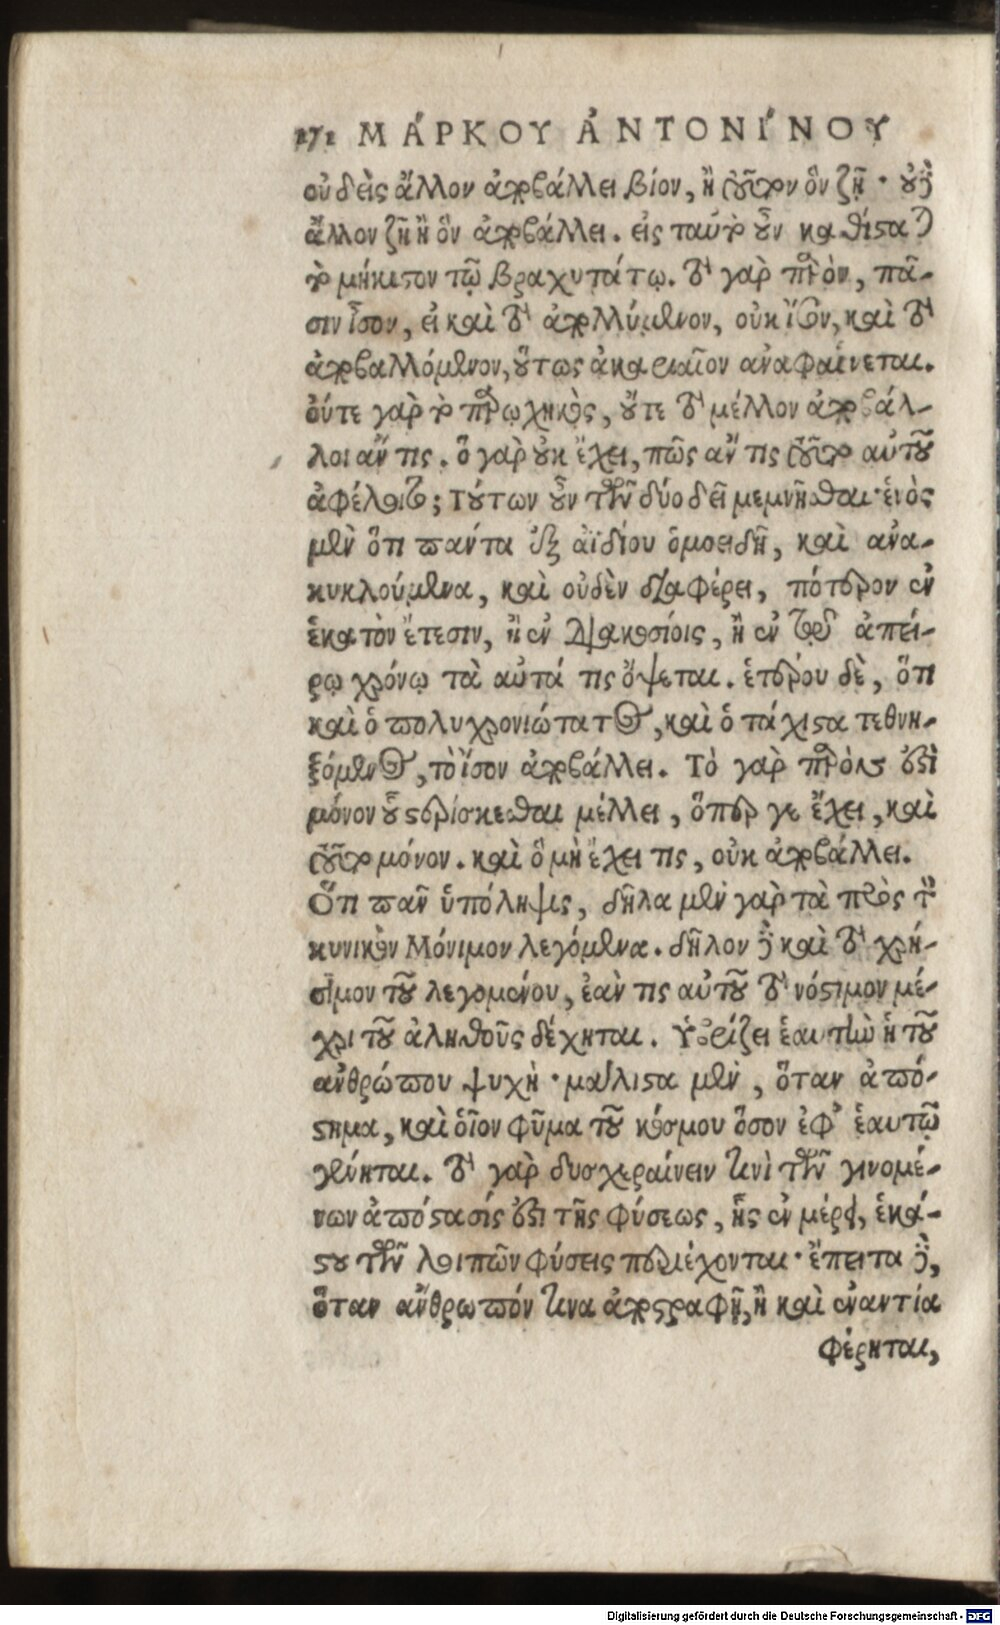 272 ΜΆΡΚΟΥ ἈΝΤΟΝΊΝΟΥ
οὐδεὶς ἄλλον ἀποβάλλει βίον, ἢ τοῦτον ὃν ζῇ· οὐδὲ
ἄλλον ζῇ ἢ ὃν ἀποβάλλει. εἰς ταὐτὸ οὖν καθίσταται
τὸ μήκιστον τῷ βραχυτάτῳ. τὸ γὰρ παρὸν, πᾶ-
σιν ἴσον, εἰ καὶ τὸ ἀπολλύμενον, οὐκ ἴσον, καὶ τὸ
ἀποβαλλόμενον, οὕτως ἀκαριαῖον ἀναφαίνεται.
οὔτε γὰρ τὸ παρῳχηκὸς, οὔτε τὸ μέλλον ἀποβάλ-
λοι ἄν τις. ὃ γὰρ οὐκ ἔχει, πῶς ἄν τις τοῦτο αὐτοῦ
ἀφέλοιτο; Τούτων οὖν τῶν δύο δεῖ μεμνῆσθαι· ἑνὸς
μὲν ὅτι πάντα ἐξ ἀϊδίου ὁμοειδῆ, καὶ ἀνα-
κυκλούμενα, καὶ οὐδὲν διαφέρει, πότερον ἐν
ἑκατὸν ἔτεσιν, ἢ ἐν διακοσίοις, ἢ ἐν τῷ ἀπεί-
ρῳ χρόνῳ τὰ αὐτά τις ὄψεται. ἑτέρου δὲ, ὅτι
καὶ ὁ πολυχρονιώτατος, καὶ ὁ τάχιστα τεθνη-
ξόμενος, τὸ ἴσον ἀποβάλλει. Τὸ γὰρ παρόν ἐστι
μόνον οὗ στερίσκεσθαι μέλλει, ὅπερ γε ἔχει, καὶ
τοῦτο μόνον. καὶ ὃ μὴ ἔχει τις, οὐκ ἀποβάλλει.
Ὅτι πᾶν ὑπόληψις, δῆλα μὲν γὰρ τὰ πρὸς τὸν
κυνικὸν Μόνιμον λεγόμενα. δῆλον δὲ καὶ τὸ χρή-
σιμον τοῦ λεγομένου, ἐάν τις αὐτοῦ τὸ νόστιμον μέ-
χρι τοῦ ἀληθοῦς δέχηται. Ὑβρίζει ἑαυτὴν ἡ τοῦ
ἀνθρώπου ψυχὴ· μάλιστα μὲν, ὅταν ἀπό-
στημα, καὶ οἷον φῦμα τοῦ κόσμου ὅσον ἐφ' ἑαυτῷ
γένηται. τὸ γὰρ δυσχεραίνειν τινὶ τῶν γινομέ-
νων ἀπόστασίς ἐστι τῆς φύσεως, ἧς ἐν μέρει, ἑκά-
στου τῶν λοιπῶν φύσεις περιέχονται· ἔπειτα δὲ,
ὅταν ἄνθρωπόν τινα ἀποστραφῇ, ἢ καὶ ἐναντία
φέρηται,
Digitalisierung gefördert durch die Deutsche Forschungsgemeinschaft - DFG